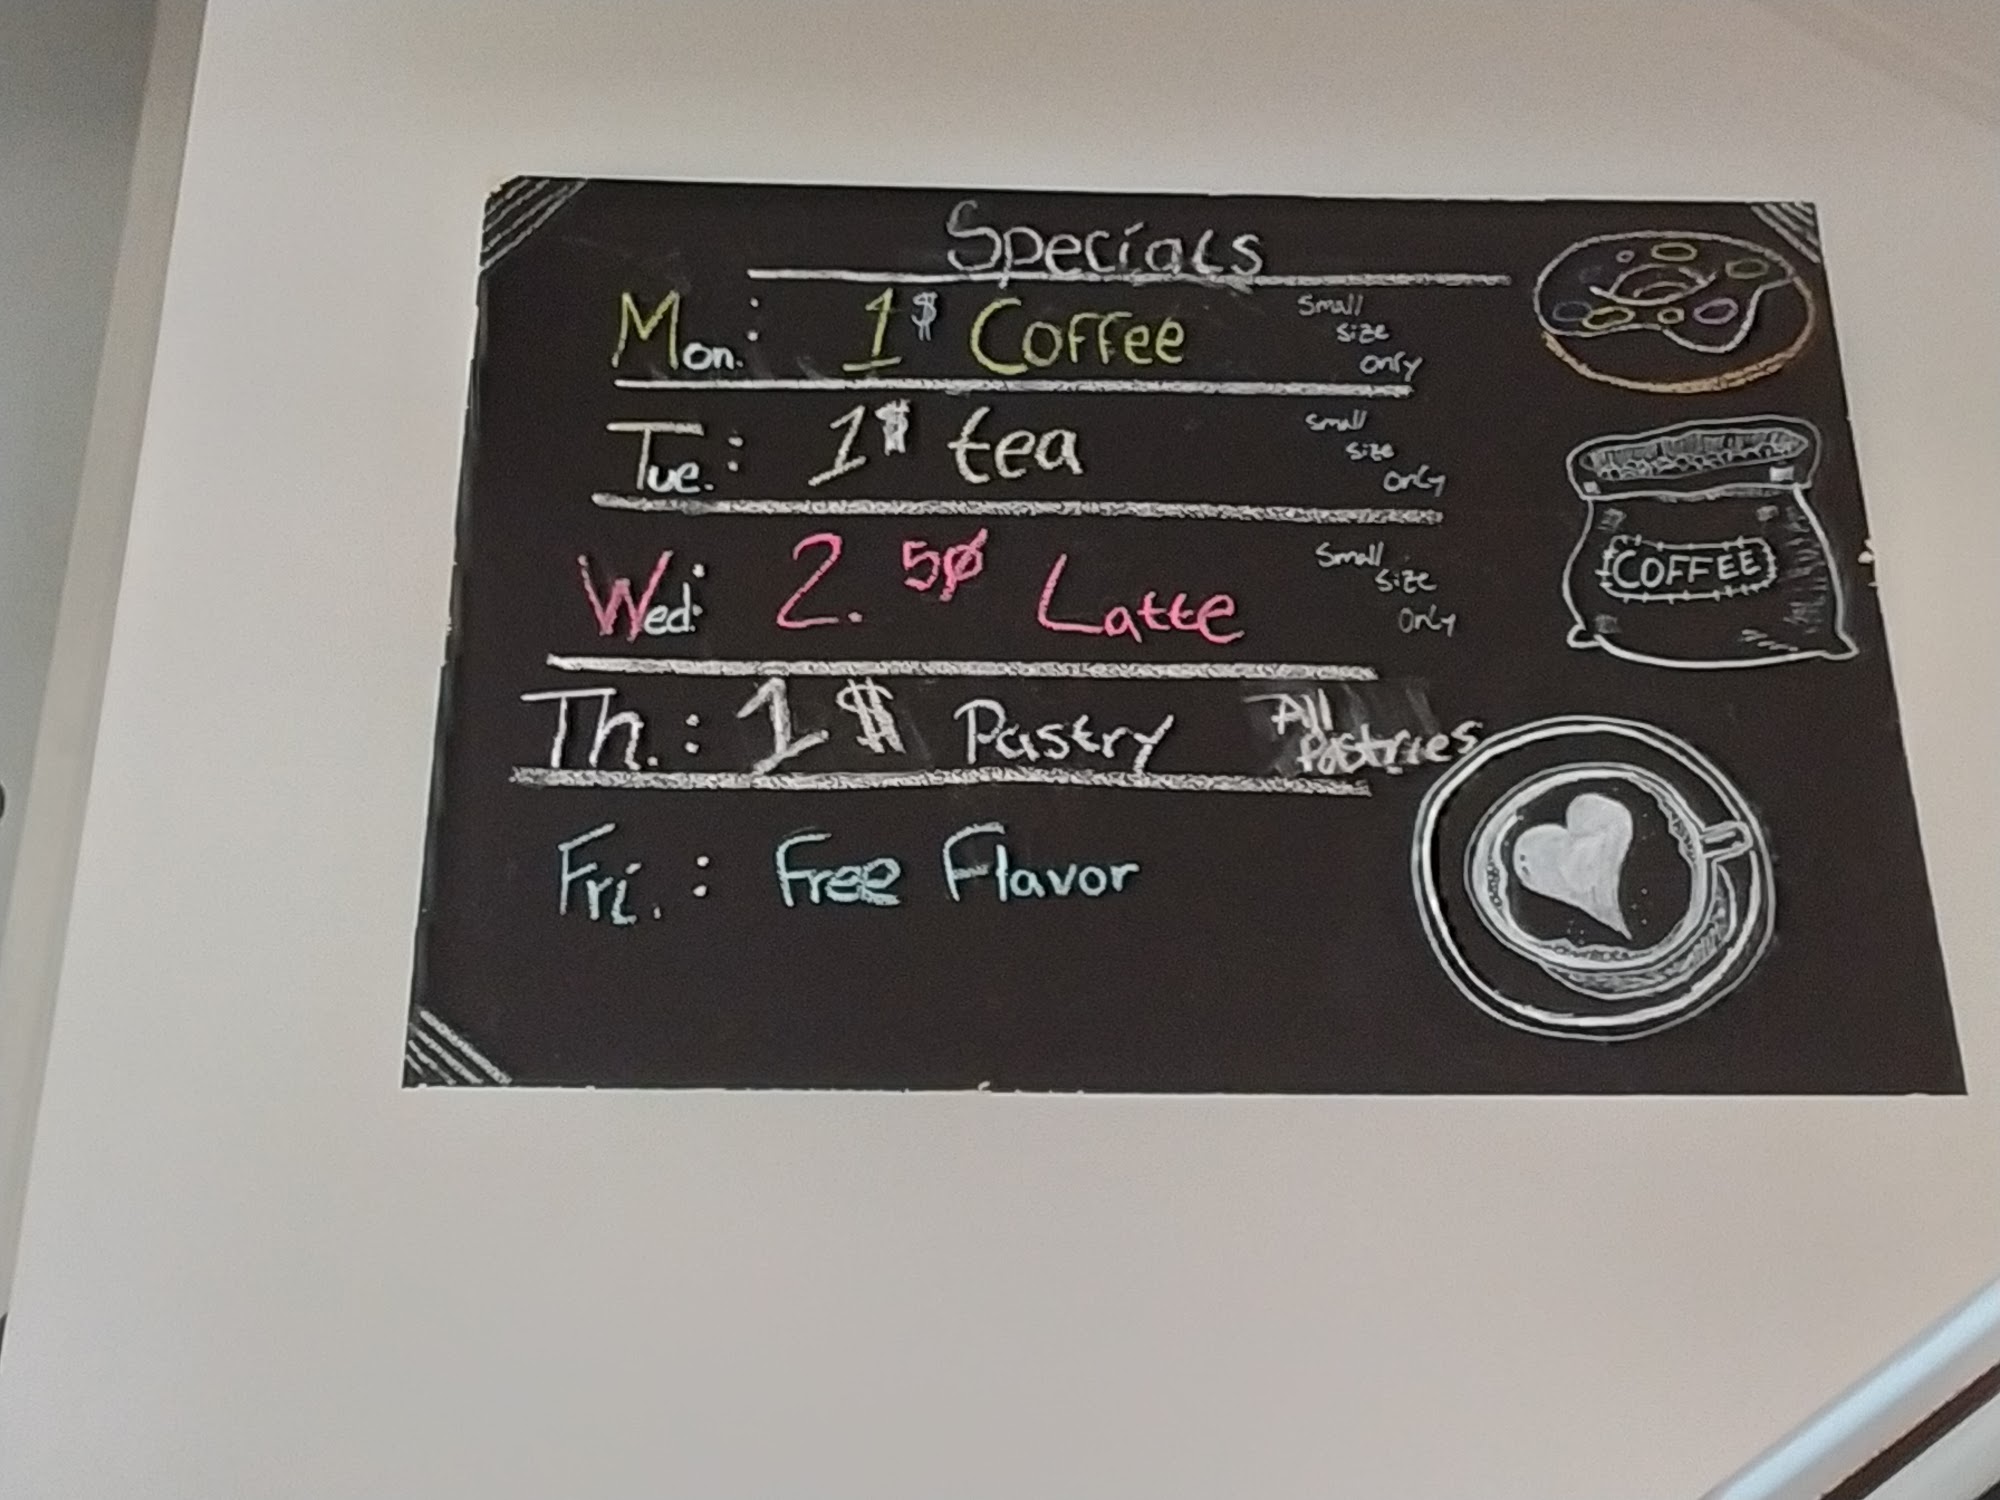 Specials
Mon.: 1$ Coffee Small size only
Tue.: 1$ tea Small size only
Wed: 2.50 Latte Small size only
COFFEE
Th.: 1$ Pastry All Pastries
Fri.: Free Flavor